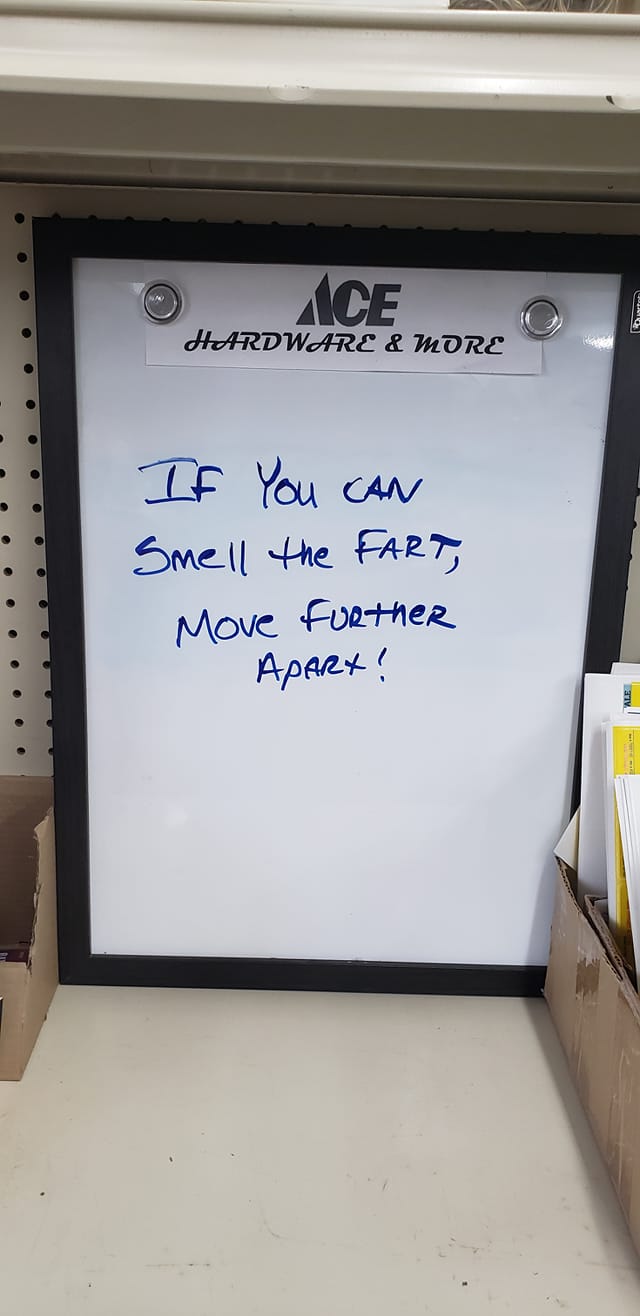 ACE
HARDWARE & MORE
IF YOU CAN
Smell the FART,
MOVE FURTHER
APART!